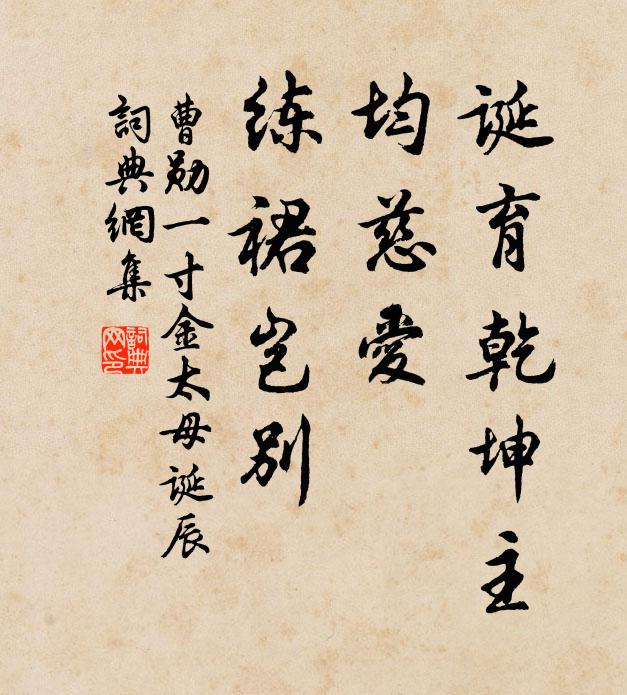 诞育乾坤主
均慈爱
练裙岂别
曹勋一寸金太母诞辰
詞典網集
詞典网印